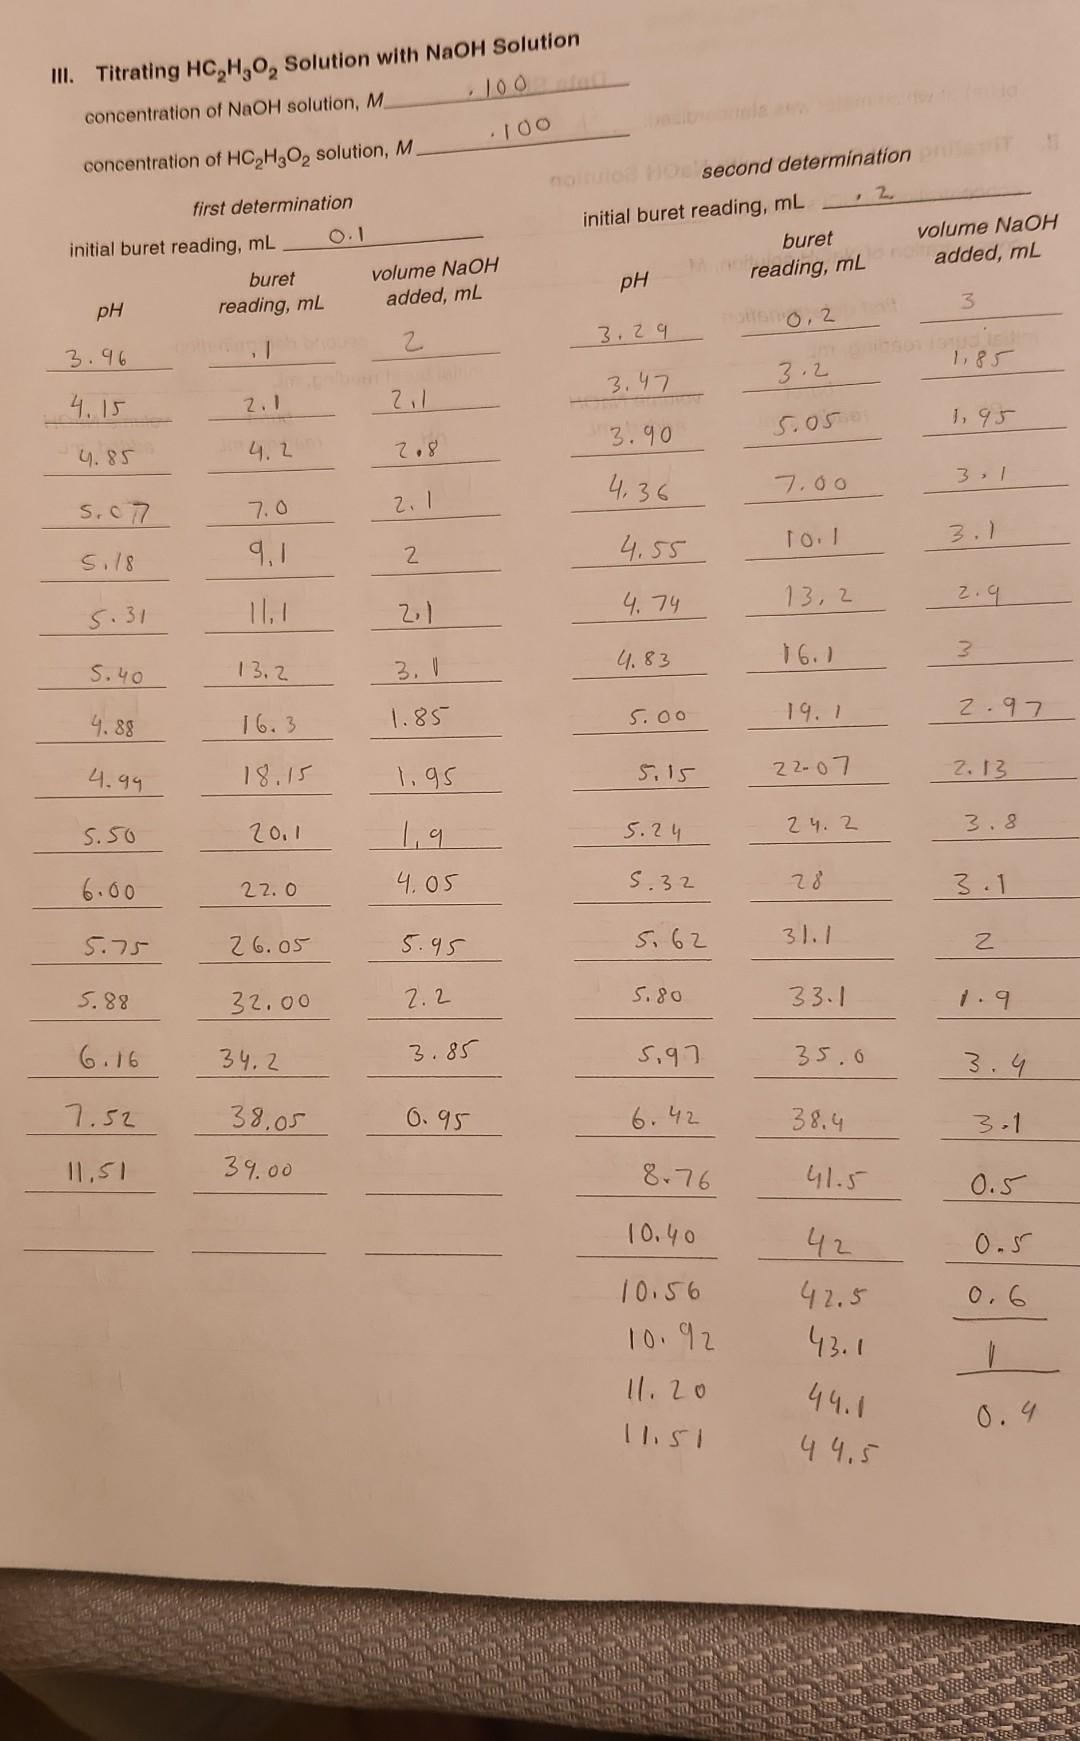 III. Titrating HC2H3O2 Solution with NaOH Solution
concentration of NaOH solution, M .100
concentration of HC2H3O2 solution, M .100
first determination
initial buret reading, mL 0.1
pH buret reading, mL volume NaOH added, mL
3.96 .1 2
4.15 2.1 2.1
4.85 4.2 2.8
5.07 7.0 2.1
5.18 9.1 2
5.31 11.1 2.1
5.40 13.2 3.1
4.88 16.3 1.85
4.94 18.15 1.95
5.50 20.1 1.9
6.00 22.0 4.05
5.75 26.05 5.95
5.88 32.00 2.2
6.16 34.2 3.85
7.52 38.05 0.95
11.51 39.00
second determination
initial buret reading, mL .2
pH buret reading, mL volume NaOH added, mL
3.29 0.2 3
3.47 3.2 1.85
3.90 5.05 1.95
4.36 7.00 3.1
4.55 10.1 3.1
4.74 13.2 2.9
4.83 16.1 3
5.00 19.1 2.97
5.15 22.07 2.13
5.24 24.2 3.8
5.32 28 3.1
5.62 31.1 2
5.80 33.1 1.9
5.97 35.0 3.4
6.42 38.4 3.1
8.76 41.5 0.5
10.40 42 0.5
10.56 42.5 0.6
10.92 43.1 1
11.20 44.1 0.4
11.51 44.5